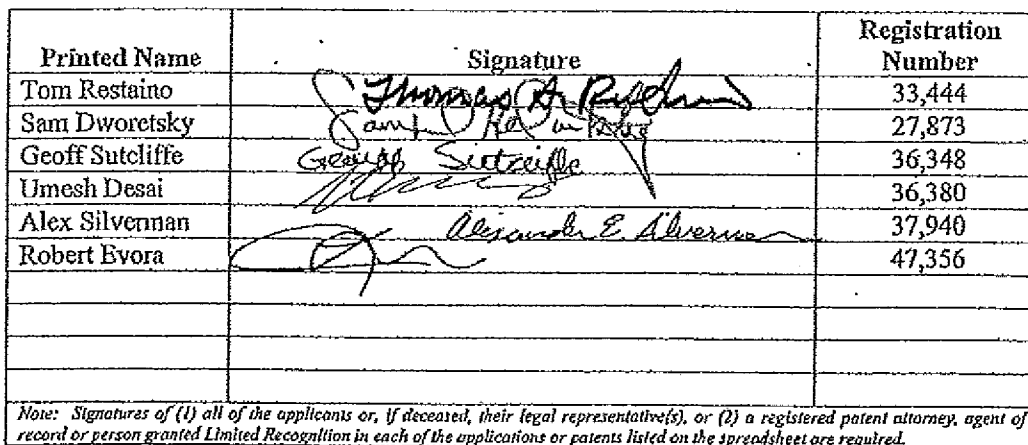 Printed Name Signature Registration Number
Tom Restaino Thomas A. 33,444
Sam Dworetsky 27,873
Geoff Sutcliffe Geoff Sutcliffe 36,348
Umesh Desai 36,380
Alex Silverman Alexander E. Silverman 37,940
Robert Evora 47,356
Note: Signatures of (1) all of the applicants or, if deceased, their legal representative(s), or (2) a registered patent attorney, agent of
record or person granted Limited Recognition in each of the applications or patents listed on the spreadsheet are required.